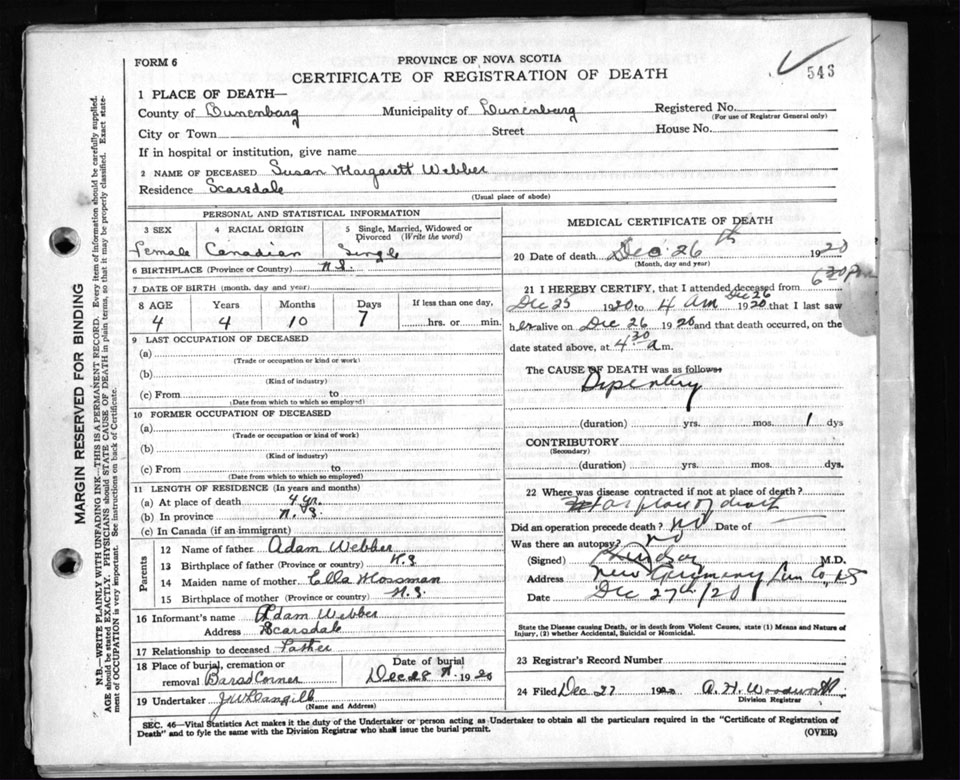 FORM 6
PROVINCE OF NOVA SCOTIA
CERTIFICATE OF REGISTRATION OF DEATH
543
1 PLACE OF DEATH—
County of Lunenburg Municipality of Lunenburg Registered No.
(For use of Registrar General only)
City or Town Street House No.
If in hospital or institution, give name
2 NAME OF DECEASED Susan Margarett Webber
Residence Scarsdale
(Usual place of abode)
PERSONAL AND STATISTICAL INFORMATION
3 SEX 4 RACIAL ORIGIN 5 Single, Married, Widowed or Divorced (Write the word)
Female Canadian Single
6 BIRTHPLACE (Province or Country) N.S.
7 DATE OF BIRTH (month, day and year)
8 AGE Years Months Days If less than one day,
4 4 10 7 hrs. or min.
9 LAST OCCUPATION OF DECEASED
(a)
(Trade or occupation or kind or work)
(b)
(Kind of industry)
(c) From to
(Date from which to which so employed)
10 FORMER OCCUPATION OF DECEASED
(a)
(Trade or occupation or kind of work)
(b)
(Kind of industry)
(c) From to
(Date from which to which so employed)
11 LENGTH OF RESIDENCE (In years and months)
(a) At place of death 4 yr.
(b) In province N.S.
(c) In Canada (if an immigrant)
Parents
12 Name of father Adam Webber
13 Birthplace of father (Province or country) N.S
14 Maiden name of mother Ella Mossman
15 Birthplace of mother (Province or country) N.S.
16 Informant's name Adam Webber
Address Scarsdale
17 Relationship to deceased Father
18 Place of burial, cremation or removal Barss Corner Date of burial Dec 28 1920
19 Undertaker
(Name and Address)
MEDICAL CERTIFICATE OF DEATH
20 Date of death Dec 26th 1920
(Month, day and year)
6 30 pm
21 I HEREBY CERTIFY, that I attended deceased from
Dec 25 1920 to 4 am Dec 26 1920 that I last saw
her alive on Dec 26 1920 and that death occurred, on the
date stated above, at 4 30 a m.
The CAUSE OF DEATH was as follows:
(duration) yrs. mos. 1 dys
CONTRIBUTORY
(Secondary)
(duration) yrs. mos. dys.
22 Where was disease contracted if not at place of death?
at place of death
Did an operation precede death? no Date of —
Was there an autopsy? no
(Signed) M.D.
Address New Germany Lun Co, NS
Date Dec 27th/20
State the Disease causing Death, or in death from Violent Causes, state (1) Means and Nature of
Injury, (2) whether Accidental, Suicidal or Homicidal.
23 Registrar's Record Number
24 Filed Dec 27 1920 A. H. Woodworth
Division Registrar
SEC. 46—Vital Statistics Act makes it the duty of the Undertaker or person acting as Undertaker to obtain all the particulars required in the "Certificate of Registration of
Death" and to fyle the same with the Division Registrar who shall issue the burial permit.
(OVER)
MARGIN RESERVED FOR BINDING
N.B.—WRITE PLAINLY WITH UNFADING INK—THIS IS A PERMANENT RECORD. Every item of information should be carefully supplied.
AGE should be stated EXACTLY. PHYSICIANS should STATE CAUSE OF DEATH in plain terms, so that it may be properly classified. Exact state-
ment of OCCUPATION is very important. See instructions on back of Certificate.